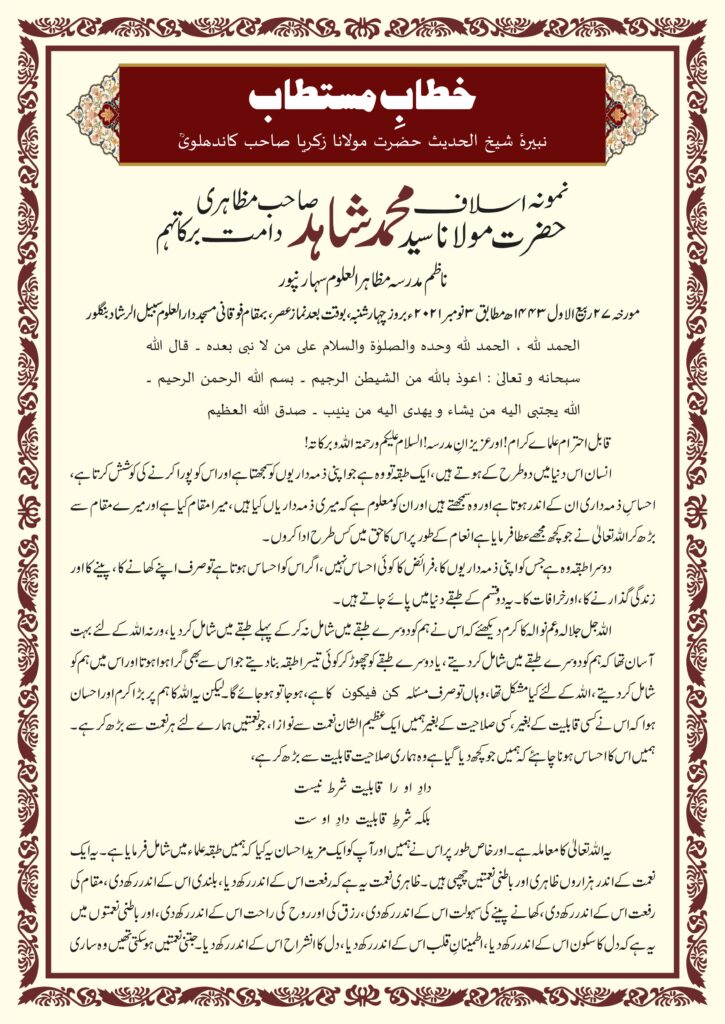 خطابِ مستطاب
نبیرۂ شیخ الحدیث حضرت مولانا زکریا صاحب کاندھلویؒ
نمونہ اسلاف
حضرت مولانا سید محمد شاہد صاحب مظاہری دامت برکاتہم
ناظم مدرسہ مظاہر العلوم سہارنپور
مورخہ ۲۷ ربیع الاول ۱۴۴۳ھ مطابق ۳ نومبر ۲۰۲۱ء بروز چہارشنبہ، بوقت بعد نماز عصر، بمقام فوقانی مسجد دار العلوم سبیل الرشاد بنگلور
الحمد للہ ، الحمد للہ وحدہ والصلوٰۃ والسلام علی من لا نبی بعدہ ۔ قال اللہ
سبحانہ و تعالیٰ : اعوذ باللہ من الشیطٰن الرجیم ۔ بسم اللہ الرحمن الرحیم ۔
اللہ یجتبی الیہ من یشاء و یھدی الیہ من ینیب ۔ صدق اللہ العظیم
قابل احترام علماے کرام! اور عزیزان مدرسہ! السلام علیکم ورحمۃ اللہ و برکاتہ!
انسان اس دنیا میں دو طرح کے ہوتے ہیں، ایک طبقہ تو وہ ہے جو اپنی ذمہ داریوں کو سمجھتا ہے اور اس کو پورا کرنے کی کوشش کرتا ہے،
احساس ذمہ داری ان کے اندر ہوتا ہے اور وہ سمجھتے ہیں اور ان کو معلوم ہے کہ میری ذمہ داریاں کیا ہیں، میرا مقام کیا ہے اور میرے مقام سے
بڑھ کر اللہ تعالیٰ نے جو کچھ مجھے عطا فرمایا ہے انعام کے طور پر اس کا حق میں کس طرح ادا کروں۔
دوسرا طبقہ وہ ہے جس کو اپنی ذمہ داریوں کا، فرائض کا کوئی احساس نہیں، اگر اس کو احساس ہوتا ہے تو صرف اپنے کھانے کا، پینے کا اور
زندگی گذارنے کا، اور خرافات کا۔ یہ دو قسم کے طبقے دنیا میں پائے جاتے ہیں۔
اللہ جل جلالہ و عم نوالہ کا کرم دیکھئے کہ اس نے ہم کو دوسرے طبقے میں شامل نہ کر کے پہلے طبقے میں شامل کر دیا، ورنہ اللہ کے لئے بہت
آسان تھا کہ ہم کو دوسرے طبقے میں شامل کر دیتے، یا دوسرے طبقے کو چھوڑ کر کوئی تیسرا طبقہ بنا دیتے جو اس سے بھی گرا ہوا ہوتا اور اس میں ہم کو
شامل کر دیتے، اللہ کے لئے کیا مشکل تھا، وہاں تو صرف مسئلہ کن فیکون کا ہے، ہو جا تو ہو جائے گا۔ لیکن یہ اللہ کا ہم پر بڑا کرم اور احسان
ہوا کہ اس نے کسی قابلیت کے بغیر، کسی صلاحیت کے بغیر ہمیں ایک عظیم الشان نعمت سے نوازا، جو نعمتیں ہمارے لئے ہر نعمت سے بڑھ کر ہے۔
ہمیں اس کا احساس ہونا چاہئے کہ ہمیں جو کچھ دیا گیا ہے وہ ہماری صلاحیت قابلیت سے بڑھ کر ہے،
دادِ او را قابلیت شرط نیست
بلکہ شرطِ قابلیت دادِ او ست
یہ اللہ تعالیٰ کا معاملہ ہے۔ اور خاص طور پر اس نے ہمیں اور آپ کو ایک مزید احسان یہ کیا کہ ہمیں طبقہ علماء میں شامل فرمایا ہے۔ یہ ایک
نعمت کے اندر ہزاروں ظاہری اور باطنی نعمتیں چھپی ہیں۔ ظاہری نعمت یہ ہے کہ رفعت اس کے اندر رکھ دیا، بلندی اس کے اندر رکھ دی، مقام کی
رفعت اس کے اندر رکھ دی، کھانے پینے کی سہولت اس کے اندر رکھ دی، رزق کی اور روح کی راحت اس کے اندر رکھ دی، اور باطنی نعمتوں میں
یہ ہے کہ دل کا سکون اس کے اندر رکھ دیا، اطمینان قلب اس کے اندر رکھ دیا، دل کا انشراح اس کے اندر رکھ دیا۔ جتنی نعمتیں ہو سکتی تھیں وہ ساری